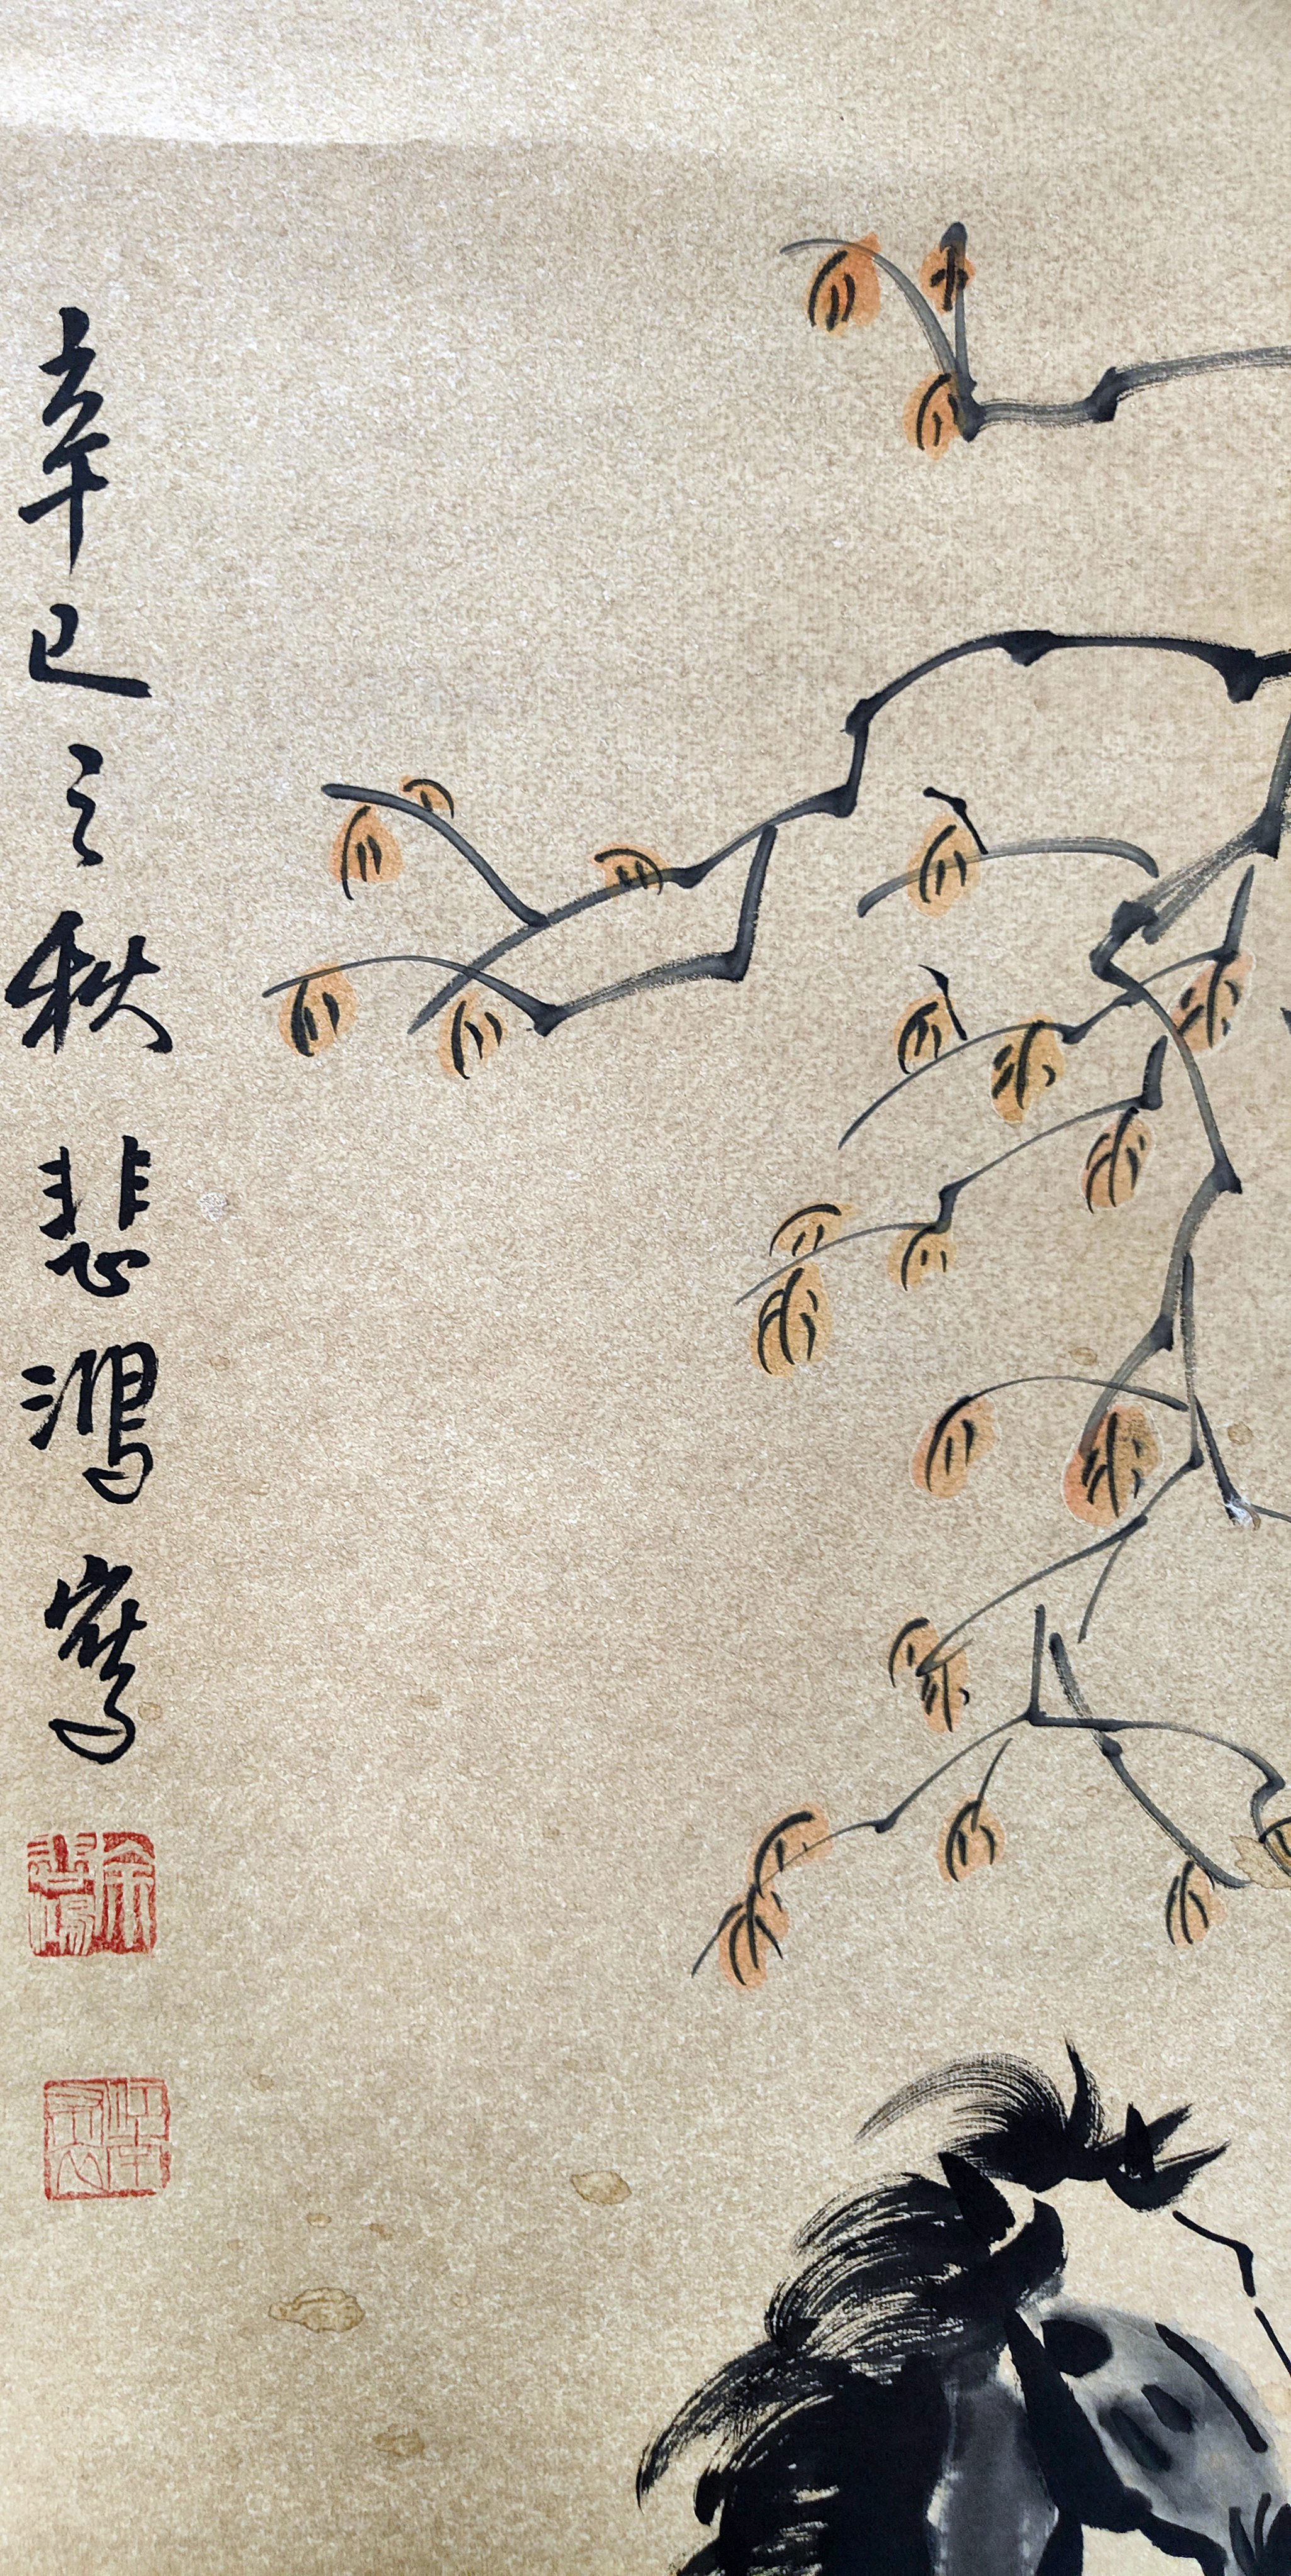 辛巳之秋悲鴻寫